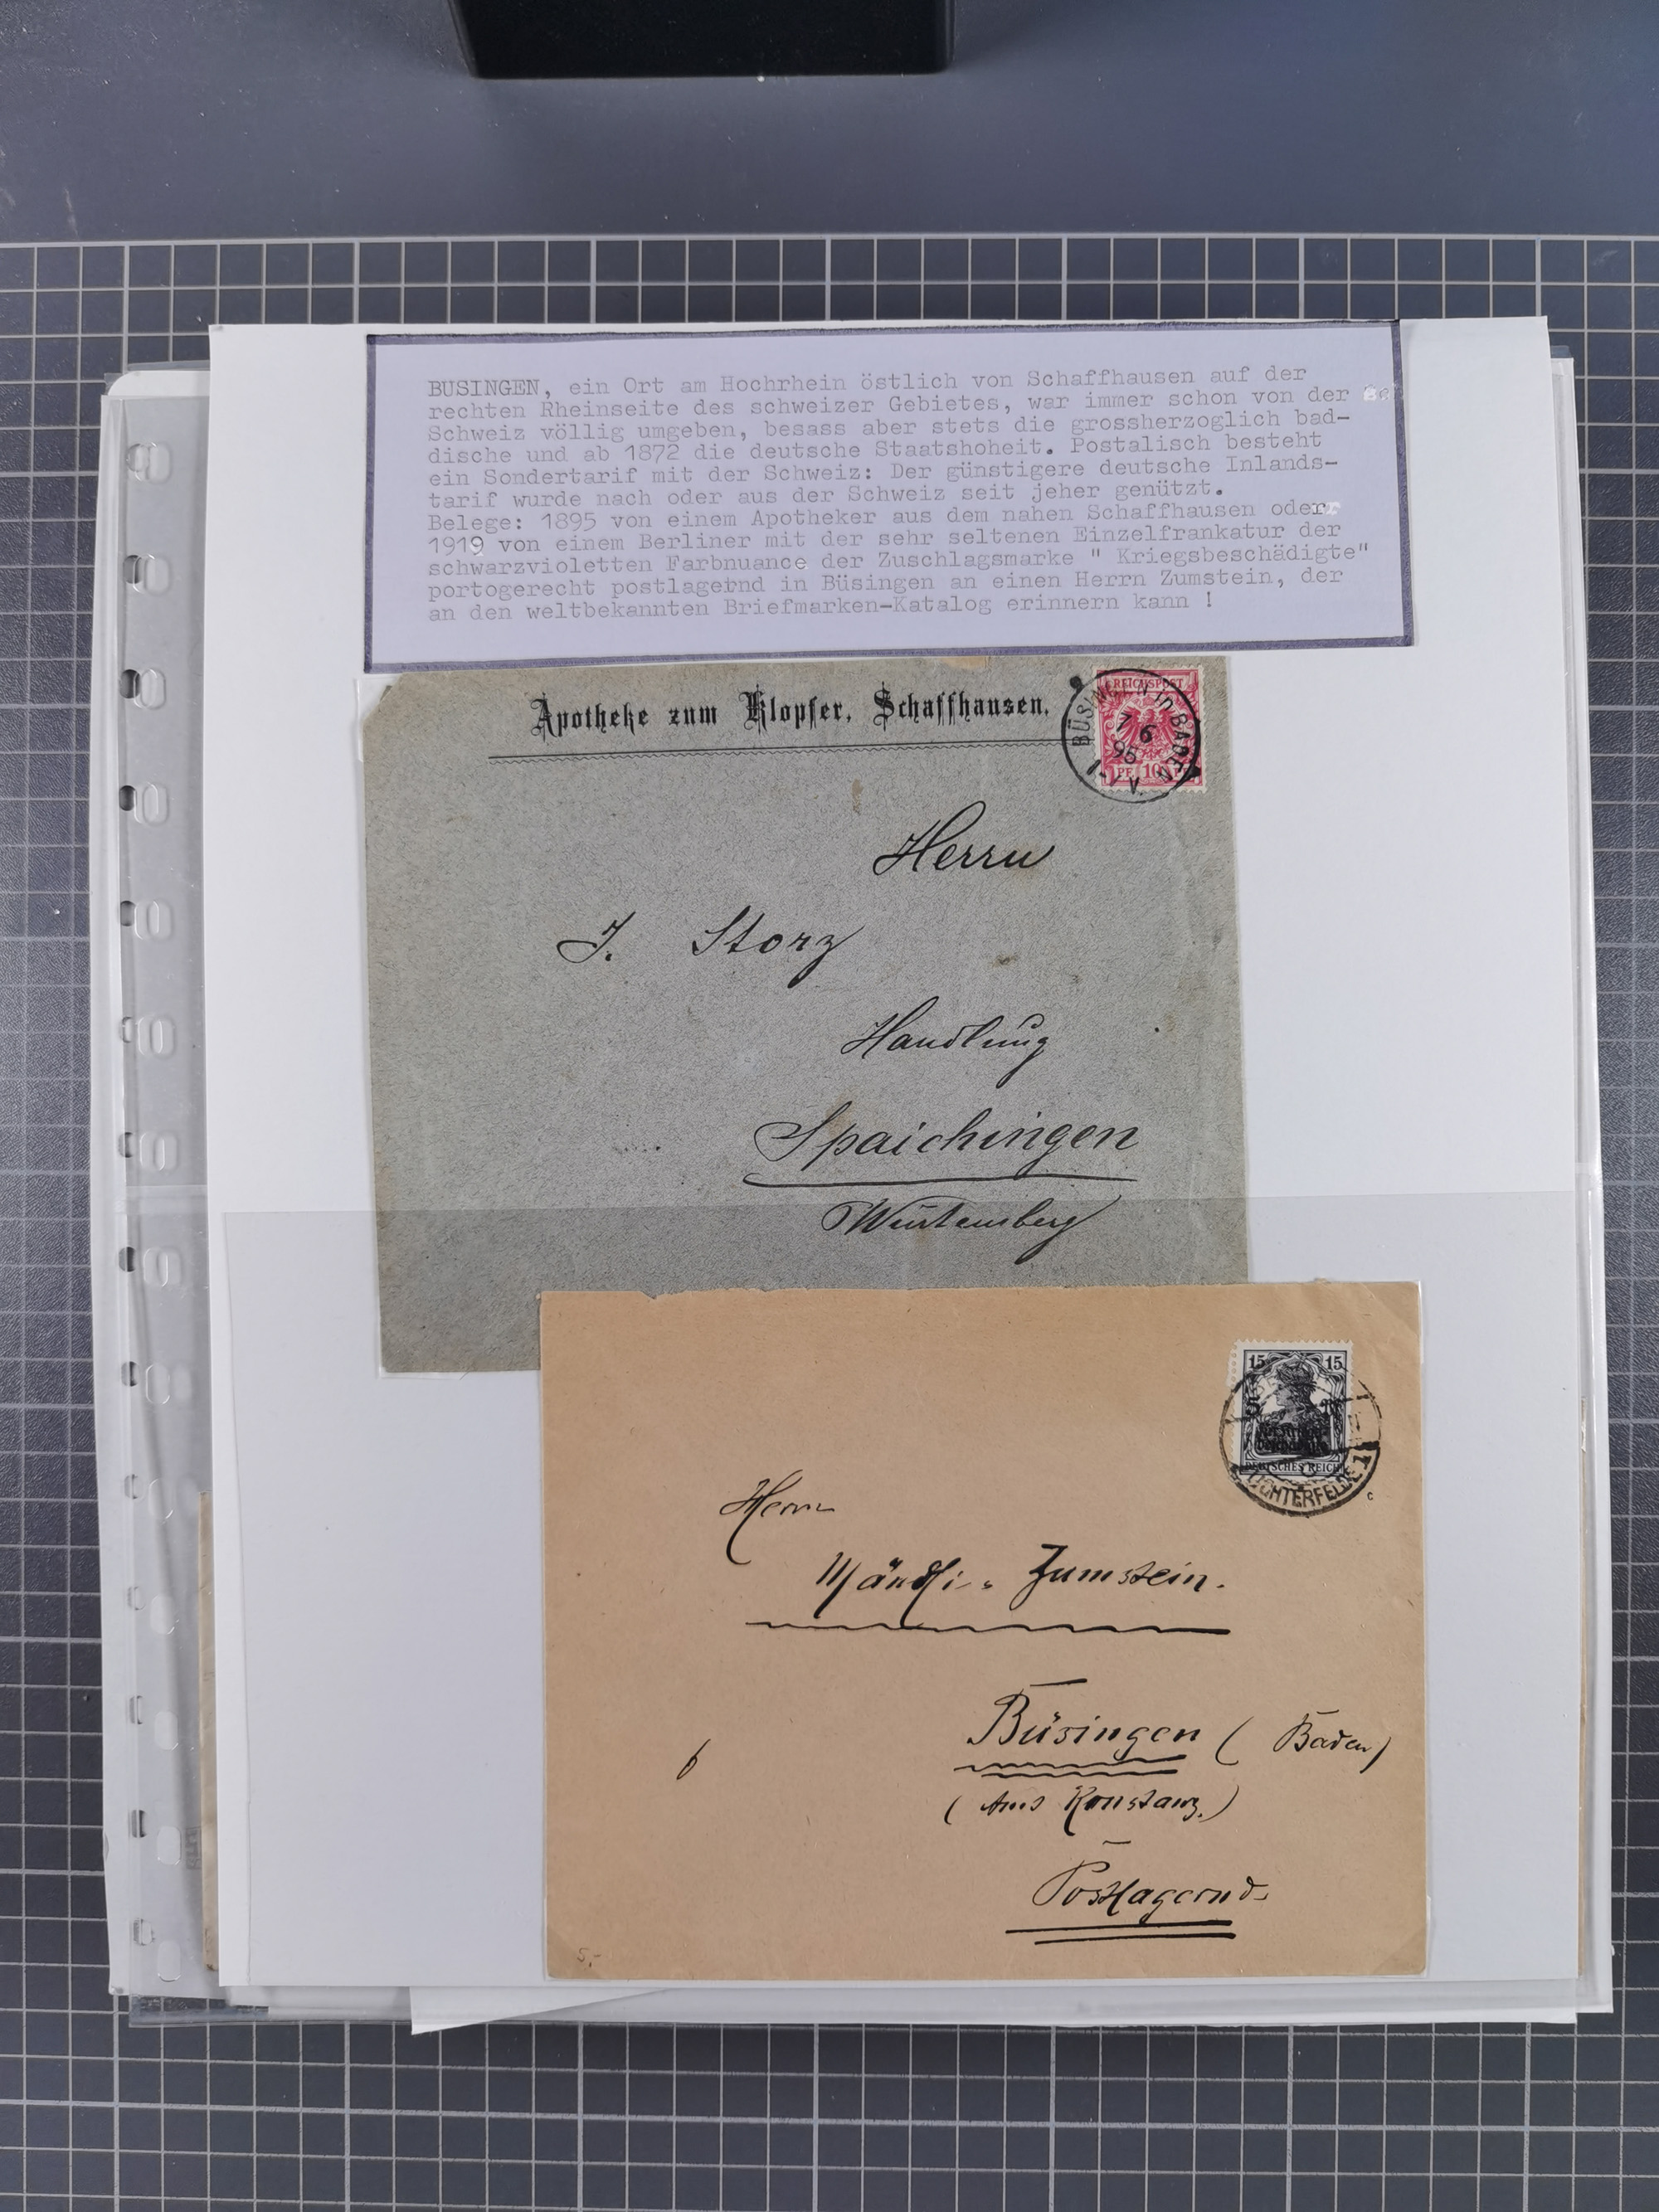 BUSINGEN, ein Ort am Hochrhein östlich von Schaffhausen auf der
rechten Rheinseite des schweizer Gebietes, war immer schon von der
Schweiz völlig umgeben, besass aber stets die grossherzoglich bad-
dische und ab 1872 die deutsche Staatshoheit. Postalisch besteht
ein Sondertarif mit der Schweiz: Der günstigere deutsche Inlands-
tarif wurde nach oder aus der Schweiz seit jeher genützt.
Belege: 1895 von einem Apotheker aus dem nahen Schaffhausen oder
1919 von einem Berliner mit der sehr seltenen Einzelfrankatur der
schwarzvioletten Farbnuance der Zuschlagsmarke " Kriegsbeschädigte"
portogerecht postlagernd in Büsingen an einen Herrn Zumstein, der
an den weltbekannten Briefmarken-Katalog erinnern kann !
Apotheke zum Klopfer, Schaffhausen.
REICHSPOST
BÜSINGEN in BADEN
7 6
95
PF 10 PF
Herrn
J. Storz
Handlung
Spaichingen
Würtemberg
15 15
5
DEUTSCHES REICH
LICHTERFELDE 1
c
Herrn
Mändli-Zumstein.
Büsingen (Baden)
(Amt Konstanz.)
Postlagernd.
5,-